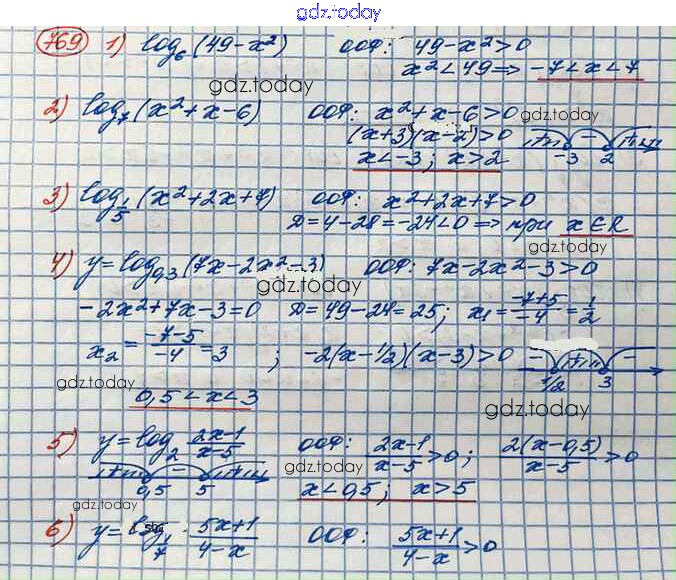 gdz.today
769 1) log₆(49-x²) ООФ: 49-x²>0
x²<49 => -7<x<7
gdz.today
2) log₇(x²+x-6) ООФ: x²+x-6>0 gdz.today
(x+3)(x-2)>0 + - + -3 2
x<-3; x>2
gdz.today
3) log_{1/5}(x²+2x+7) ООФ: x²+2x+7>0
Д=4-28=-24<0 => при x∈R
gdz.today
4) y=log₀,₃(7x-2x²-3) ООФ: 7x-2x²-3>0
gdz.today
-2x²+7x-3=0 Д=49-24=25; x₁=\frac{-7+5}{-4}=\frac{1}{2}
x₂=\frac{-7-5}{-4}=3; -2(x-1/2)(x-3)>0 - + - 1/2 3
gdz.today
0,5<x<3 gdz.today
5) y=log₂\frac{2x-1}{x-5} ООФ: \frac{2x-1}{x-5}>0; \frac{2(x-0,5)}{x-5}>0
gdz.today
+ - + 0,5 5 x<0,5; x>5
gdz.today
6) y=log_{1/7}\frac{5x+1}{4-x} ООФ: \frac{5x+1}{4-x}>0